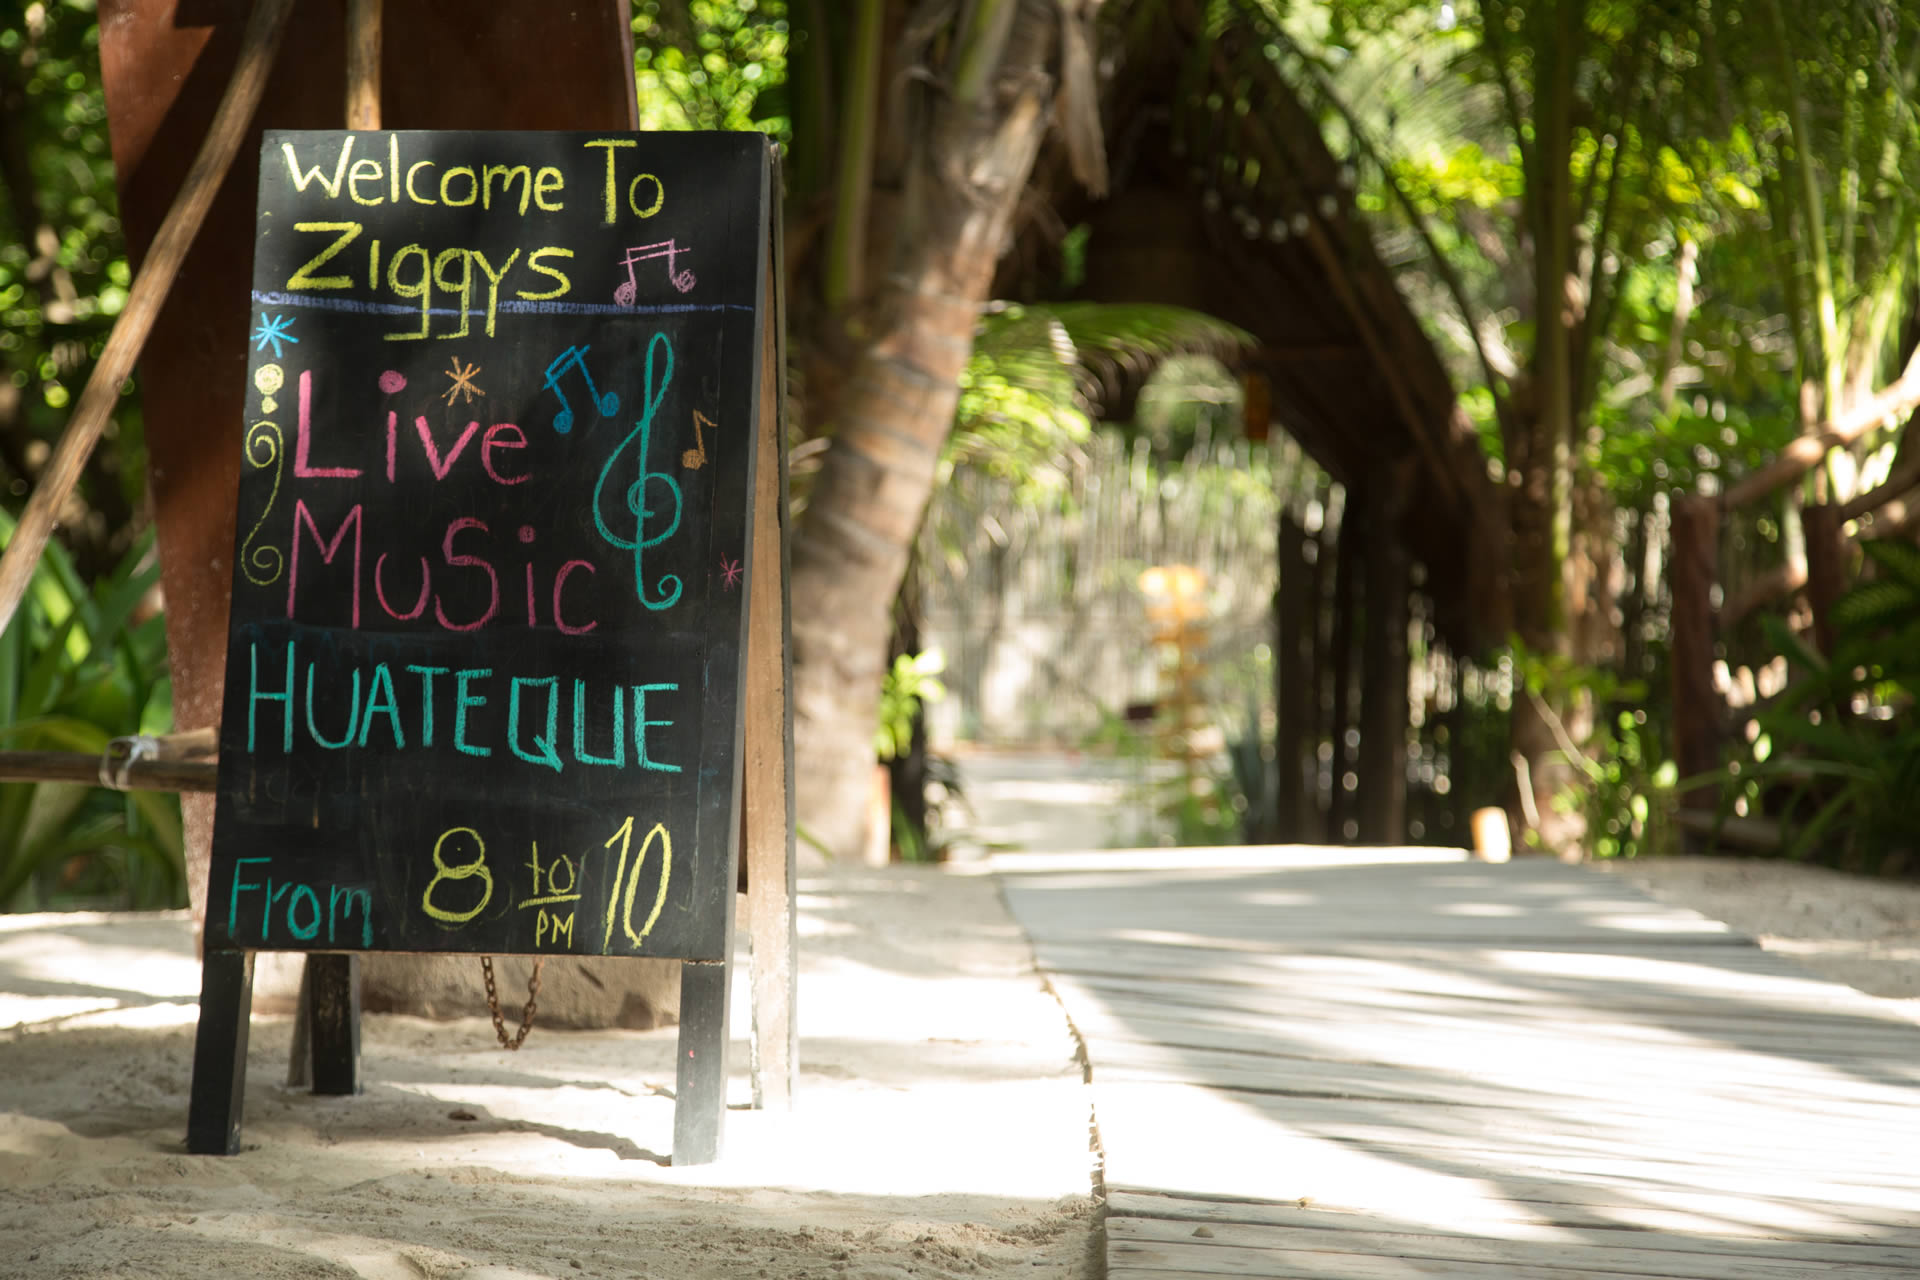 Welcome To
Ziggys
Live
Music
HUATEQUE
From 8 to 10
PM